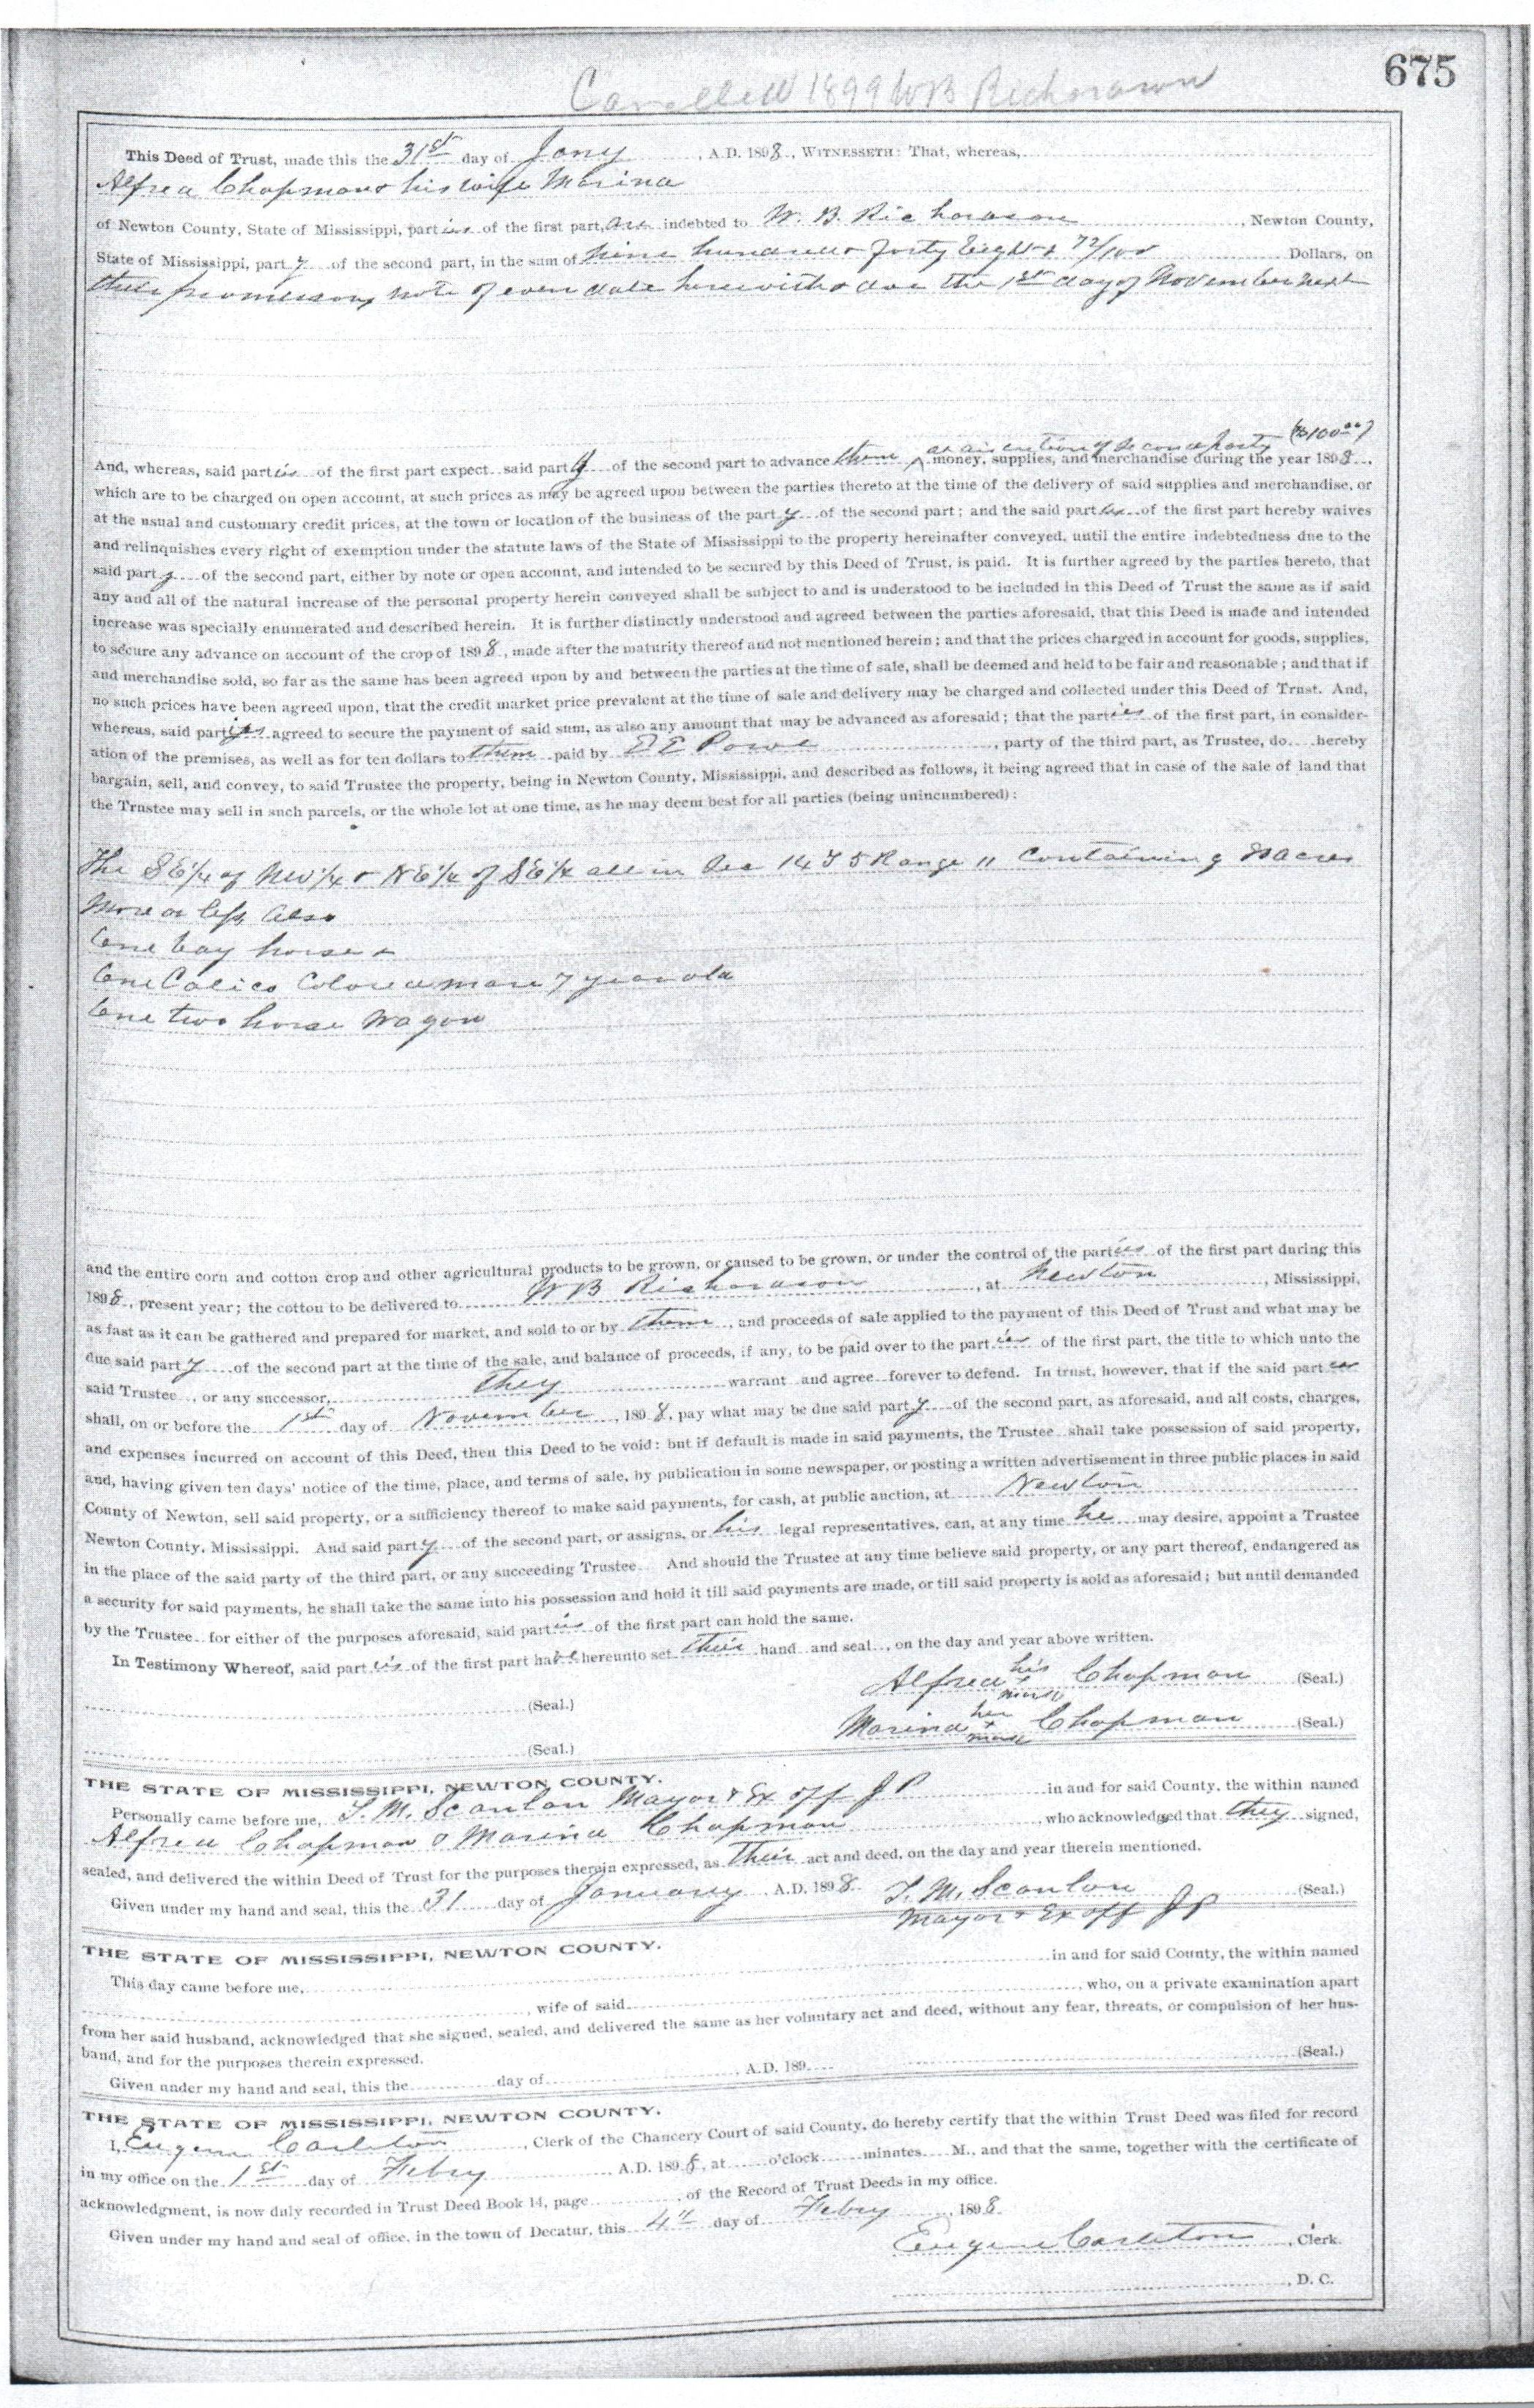 675
Cancelled 1899 WB Richardson
This Deed of Trust, made this the 31st day of Jany, A.D. 1898, WITNESSETH: That, whereas,
Alfred Chapman & his wife Marina
of Newton County, State of Mississippi, parties of the first part, are indebted to W. B. Richardson, Newton County,
State of Mississippi, party of the second part, in the sum of nine hundred & forty Eight & 72/100 Dollars, on
their promissory note of even date herewith & due the 1st day of November next
at discretion of second party ($100.00)
And, whereas, said parties of the first part expect said party of the second part to advance them money, supplies, and merchandise during the year 1898,
which are to be charged on open account, at such prices as may be agreed upon between the parties thereto at the time of the delivery of said supplies and merchandise, or
at the usual and customary credit prices, at the town or location of the business of the party of the second part; and the said parties of the first part hereby waives
and relinquishes every right of exemption under the statute laws of the State of Mississippi to the property hereinafter conveyed, until the entire indebtedness due to the
said party of the second part, either by note or open account, and intended to be secured by this Deed of Trust, is paid. It is further agreed by the parties hereto, that
any and all of the natural increase of the personal property herein conveyed shall be subject to and is understood to be included in this Deed of Trust the same as if said
increase was specially enumerated and described herein. It is further distinctly understood and agreed between the parties aforesaid, that this Deed is made and intended
to secure any advance on account of the crop of 1898, made after the maturity thereof and not mentioned herein; and that the prices charged in account for goods, supplies,
and merchandise sold, so far as the same has been agreed upon by and between the parties at the time of sale, shall be deemed and held to be fair and reasonable; and that if
no such prices have been agreed upon, that the credit market price prevalent at the time of sale and delivery may be charged and collected under this Deed of Trust. And,
whereas, said parties agreed to secure the payment of said sum, as also any amount that may be advanced as aforesaid; that the parties of the first part, in consider-
ation of the premises, as well as for ten dollars to them paid by E E Powe, party of the third part, as Trustee, do hereby
bargain, sell, and convey, to said Trustee the property, being in Newton County, Mississippi, and described as follows, it being agreed that in case of the sale of land that
the Trustee may sell in such parcels, or the whole lot at one time, as he may deem best for all parties (being unincumbered):
The SE1/4 of NW1/4 & NE1/4 of SE1/4 all in Sec 14 T 5 Range 11 Containing 80 acres
More or less, also
One bay horse &
One Calico Colored mare 7 year old
One two horse Wagon
and the entire corn and cotton crop and other agricultural products to be grown, or caused to be grown, or under the control of the parties of the first part during this
1898, present year; the cotton to be delivered to WB Richardson, at Newton, Mississippi,
as fast as it can be gathered and prepared for market, and sold to or by them, and proceeds of sale applied to the payment of this Deed of Trust and what may be
due said party of the second part at the time of the sale, and balance of proceeds, if any, to be paid over to the parties of the first part, the title to which unto the
said Trustee, or any successor, they warrant and agree forever to defend. In trust, however, that if the said parties
shall, on or before the 1st day of November, 1898, pay what may be due said party of the second part, as aforesaid, and all costs, charges,
and expenses incurred on account of this Deed, then this Deed to be void: but if default is made in said payments, the Trustee shall take possession of said property,
and, having given ten days' notice of the time, place, and terms of sale, by publication in some newspaper, or posting a written advertisement in three public places in said
County of Newton, sell said property, or a sufficiency thereof to make said payments, for cash, at public auction, at Newton
Newton County, Mississippi. And said party of the second part, or assigns, or his legal representatives, can, at any time he may desire, appoint a Trustee
in the place of the said party of the third part, or any succeeding Trustee. And should the Trustee at any time believe said property, or any part thereof, endangered as
a security for said payments, he shall take the same into his possession and hold it till said payments are made, or till said property is sold as aforesaid; but until demanded
by the Trustee for either of the purposes aforesaid, said parties of the first part can hold the same.
In Testimony Whereof, said parties of the first part have hereunto set their hand and seal, on the day and year above written.
Alfred his x mark Chapman (Seal.)
(Seal.)
Marina her x mark Chapman (Seal.)
(Seal.)
THE STATE OF MISSISSIPPI, NEWTON COUNTY.
Personally came before me, T. M. Scanlon Mayor & Ex off J P in and for said County, the within named
Alfred Chapman & Marina Chapman, who acknowledged that they signed,
sealed, and delivered the within Deed of Trust for the purposes therein expressed, as their act and deed, on the day and year therein mentioned.
Given under my hand and seal, this the 31 day of January, A.D. 1898. T. M. Scanlon (Seal.)
Mayor & Ex off J P
THE STATE OF MISSISSIPPI, NEWTON COUNTY.
This day came before me, in and for said County, the within named
, wife of said, who, on a private examination apart
from her said husband, acknowledged that she signed, sealed, and delivered the same as her voluntary act and deed, without any fear, threats, or compulsion of her hus-
band, and for the purposes therein expressed.
Given under my hand and seal, this the day of, A.D. 189 (Seal.)
THE STATE OF MISSISSIPPI, NEWTON COUNTY.
I, Eugene Carleton, Clerk of the Chancery Court of said County, do hereby certify that the within Trust Deed was filed for record
in my office on the 1st day of Febry A.D. 1898, at o'clock minutes M., and that the same, together with the certificate of
acknowledgment, is now duly recorded in Trust Deed Book 14, page, of the Record of Trust Deeds in my office.
Given under my hand and seal of office, in the town of Decatur, this 4th day of Febry, 1898
Eugene Carleton, Clerk.
, D. C.